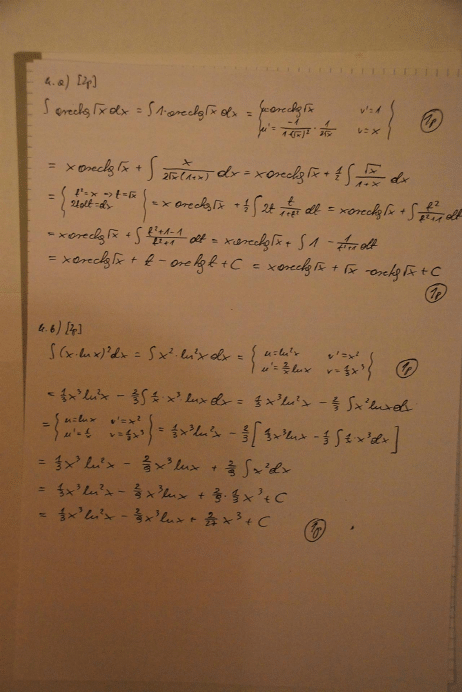 4.a) [2p]
∫ arcctg√x dx = ∫ 1·arcctg√x dx = { arcctg√x v'=1
u' = -1/(1+(√x)²) · 1/(2√x) v=x } 1p
= x arcctg√x + ∫ x/(2√x(1+x)) dx = x arcctg√x + 1/2 ∫ √x/(1+x) dx
= { t²=x → t=√x
2tdt=dx } = x arcctg√x + 1/2 ∫ 2t t/(1+t²) dt = x arcctg√x + ∫ t²/(t²+1) dt
= x arcctg√x + ∫ (t²+1-1)/(t²+1) dt = x arcctg√x + ∫ 1 - 1/(t²+1) dt
= x arcctg√x + t - arctg t + C = x arcctg√x + √x - arctg√x + C
1p
4.b) [2p]
∫(x·lnx)²dx = ∫x²·ln²x dx = { u=ln²x v'=x²
u'=2/x lnx v=1/3 x³ } 1p
= 1/3 x³ ln²x - 2/3 ∫ 1/x · x³ lnx dx = 1/3 x³ ln²x - 2/3 ∫x² lnx dx
= { u=lnx v'=x²
u'=1/x v=1/3 x³ } = 1/3 x³ ln²x - 2/3 [ 1/3 x³ lnx - 1/3 ∫ 1/x · x³ dx ]
= 1/3 x³ ln²x - 2/9 x³ lnx + 2/9 ∫x² dx
= 1/3 x³ ln²x - 2/9 x³ lnx + 2/9 · 1/3 x³ + C
= 1/3 x³ ln²x - 2/9 x³ lnx + 2/27 x³ + C
1p